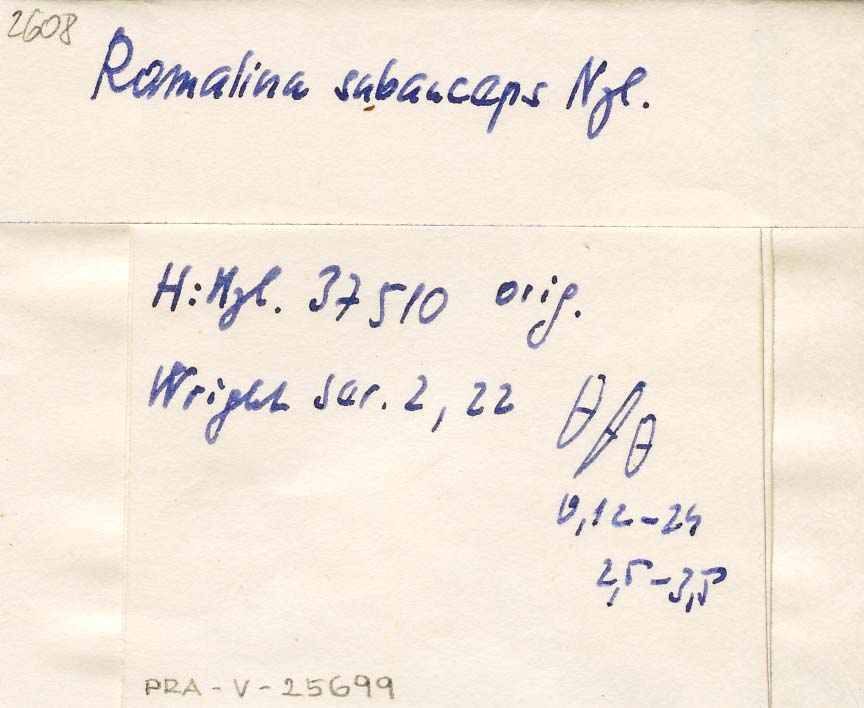 2608
Ramalina subanceps Nyl.
H: Nyl. 37510 orig.
Wright ser. 2, 22
12-24
2,5-3,5
PRA-V-25699